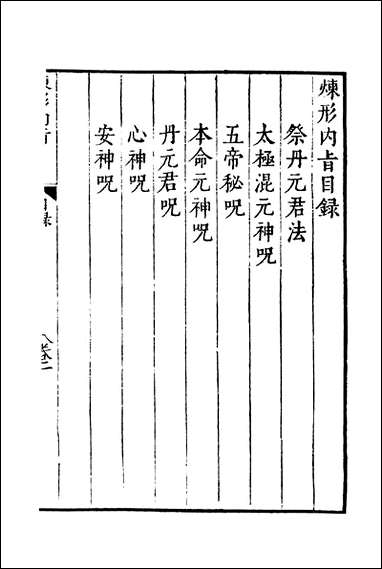 煉形内旨目錄
祭丹元君法
太極混元神呪
五帝秘呪
本命元神呪
丹元君呪
心神呪
安神呪
煉形内旨
目錄